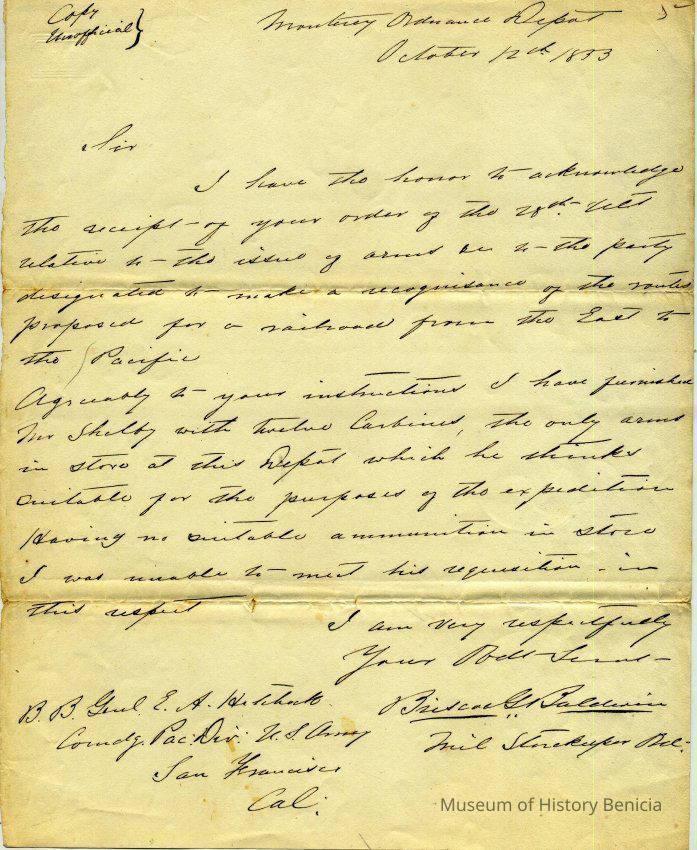 Copy
Unofficial
Monterey Ordnance Depot
October 12th 1853
Sir
I have the honor to acknowledge
the receipt of your order of the 28th Ult
relative to the issue of arms &c to the party
designated to make a recognisance of the routes
proposed for a railroad from the East to
the Pacific
Agreeably to your instructions I have furnished
Mr Shelby with twelve Carbines, the only arms
in store at this Depot which he thinks
suitable for the purposes of the expedition
Having no suitable ammunition in store
I was unable to meet his requisition in
this respect
I am very respectfully
Your Obdt Servt
B. B. Genl. E. A. Hitchcock
Briscoe G. Baldwin
Comdg. Pac. Div. U.S. Army
Mil Storekeeper Ord.
San Francisco
Cal.
Museum of History Benicia